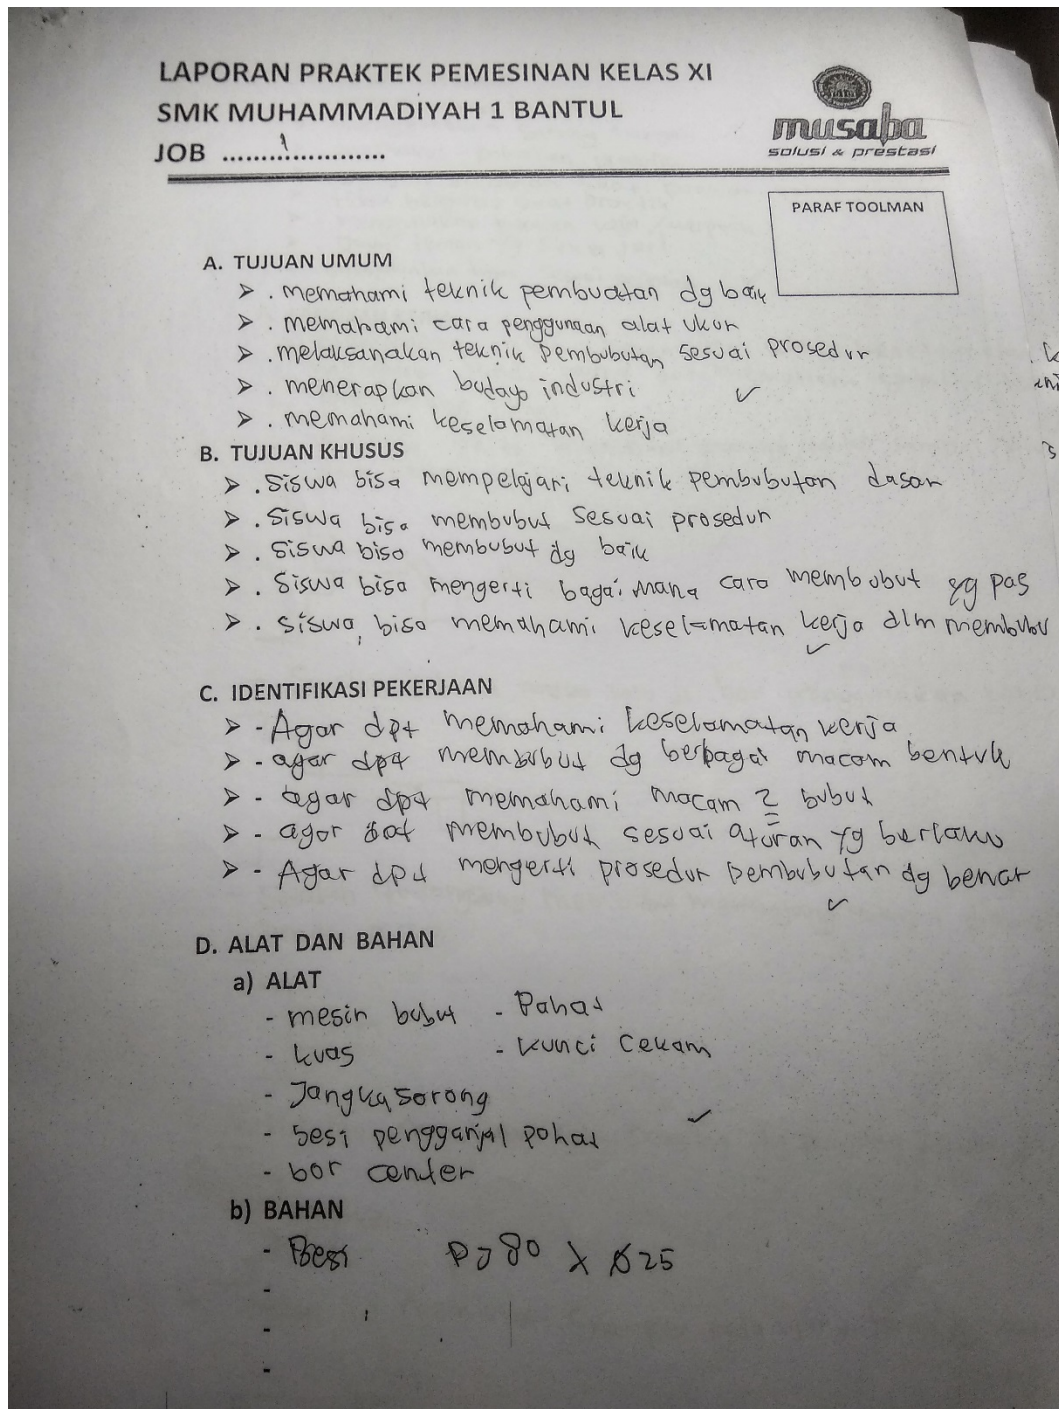 LAPORAN PRAKTEK PEMESINAN KELAS XI
SMK MUHAMMADIYAH 1 BANTUL
JOB ........1..............
musaba
solusi & prestasi
PARAF TOOLMAN
A. TUJUAN UMUM
➤ . memahami teknik pembuatan dg baik
➤ . memahami cara penggunaan alat ukur
➤ . melaksanakan teknik pembubutan sesuai prosedur
➤ . menerapkan budaya industri
➤ . memahami keselamatan kerja
B. TUJUAN KHUSUS
➤ . siswa bisa mempelajari teknik pembubutan dasar
➤ . siswa bisa membubut sesuai prosedur
➤ . siswa biso membubut dg baik
➤ . siswa bisa mengerti bagai mana cara membubut yg pas
➤ . siswa, bisa memahami keselamatan kerja dlm membubu
C. IDENTIFIKASI PEKERJAAN
➤ - Agar dpt memahami keselamatan kerja
➤ - agar dpt membubut dg berbagai macam bentuk
➤ - agar dpt memahami macam 2 bubut
➤ - agar membubut sesuai aturan yg berlaku
➤ - Agar dpt mengerti prosedur pembubutan dg benar
D. ALAT DAN BAHAN
a) ALAT
- mesin bubut - Pahat
- kuas - kunci cekam
- Jangka sorong
- besi pengganjal pahat
- bor center
b) BAHAN
- Besi PJ 80 x Ø25
-
-
-